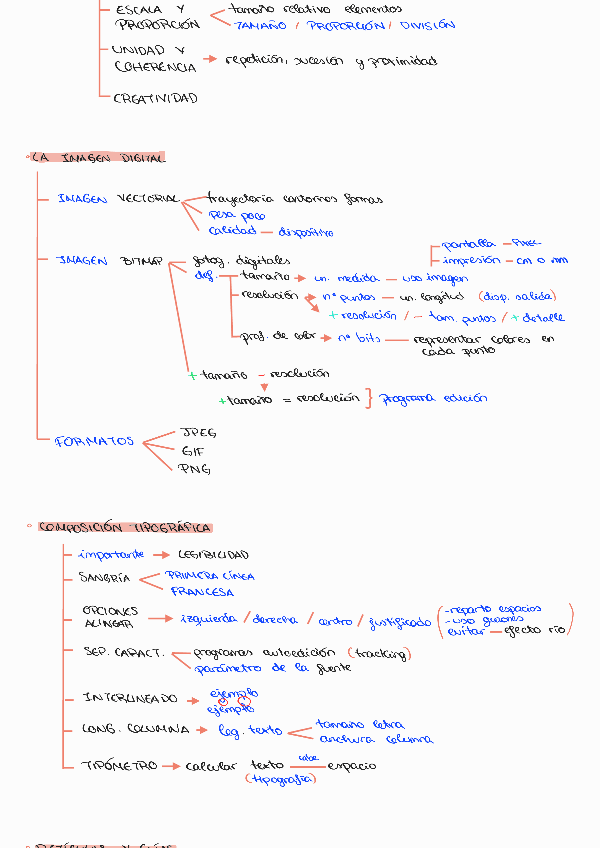 ESCALA Y PROPORCIÓN
tamaño relativo elementos
TAMAÑO / PROPORCIÓN / DIVISIÓN
UNIDAD Y COHERENCIA → repetición, sucesión y proximidad
CREATIVIDAD
LA IMAGEN DIGITAL
IMAGEN VECTORIAL
trayectoria contornos formas
pesa poco
calidad — dispositivo
IMAGEN BITMAP
fotog. digitales
pantalla — PÍXEL
impresión — cm o mm
def. tamaño → un. medida — uso imagen
resolución → nº puntos — un. longitud (disp. salida)
+ resolución / - tam. puntos / + detalle
prof. de color → nº bits — representar colores en
cada punto
+ tamaño - resolución
+ tamaño = resolución } programa edición
FORMATOS
JPEG
GIF
PNG
COMPOSICIÓN TIPOGRÁFICA
importante → LEGIBILIDAD
SANGRÍA
PRIMERA LÍNEA
FRANCESA
OPCIONES ALINEAR → izquierda / derecha / centro / justificado
(- reparto espacios
- uso guiones
evitar — efecto río)
SEP. CARACT.
programas autoedición (tracking)
parámetro de la fuente
INTERLINEADO → ejemplo
ejemplo
LONG. COLUMNA → leg. texto
tamaño letra
anchura columna
TIPÓMETRO → calcular texto — sobre — espacio
(tipografía)